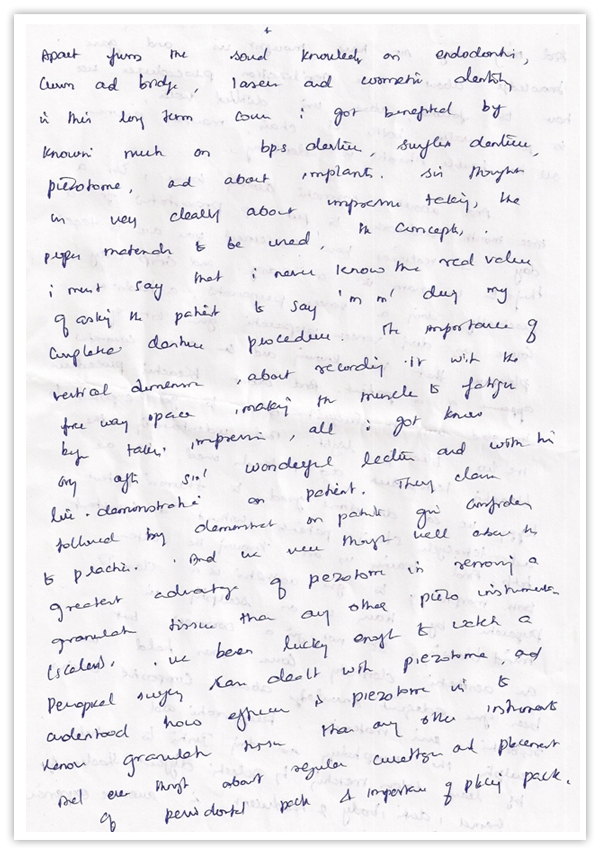 Apart from the sound knowledge on endodontis,
Crown ad bridge, lasers and cosmetic dentistry
in this long term course i got benefited by
knowni much on bps denture, single denture,
piezotome, ad about implants. Sir thought
us very clearly about impression taking, the
proper materials to be used, the concepts,
i must say that i never know the real value
of asking the patient to say 'm m' during my
Complete denture procedure. The importance of
vertical dimension, about recording it with the
free way space, making the muscle to fatigue
before taking impression, all i got know
only after sir' wonderful lecture and with his
live demonstration on patient. They
followed by demonstrat on patients give confiden
to practice. And we were thought well about the
greatest advantage of piezotome in removing a
granulation tissue than any other piezo instruments
(scalers). we been lucky enough to watch a
Periapical surgery dealt with piezotome, ad
understood how efficien is piezotome is to
remove granulatn tissue than any other instruments
And even thought about regular curettage ad placement
of periodontal pack & importance of placing pack.